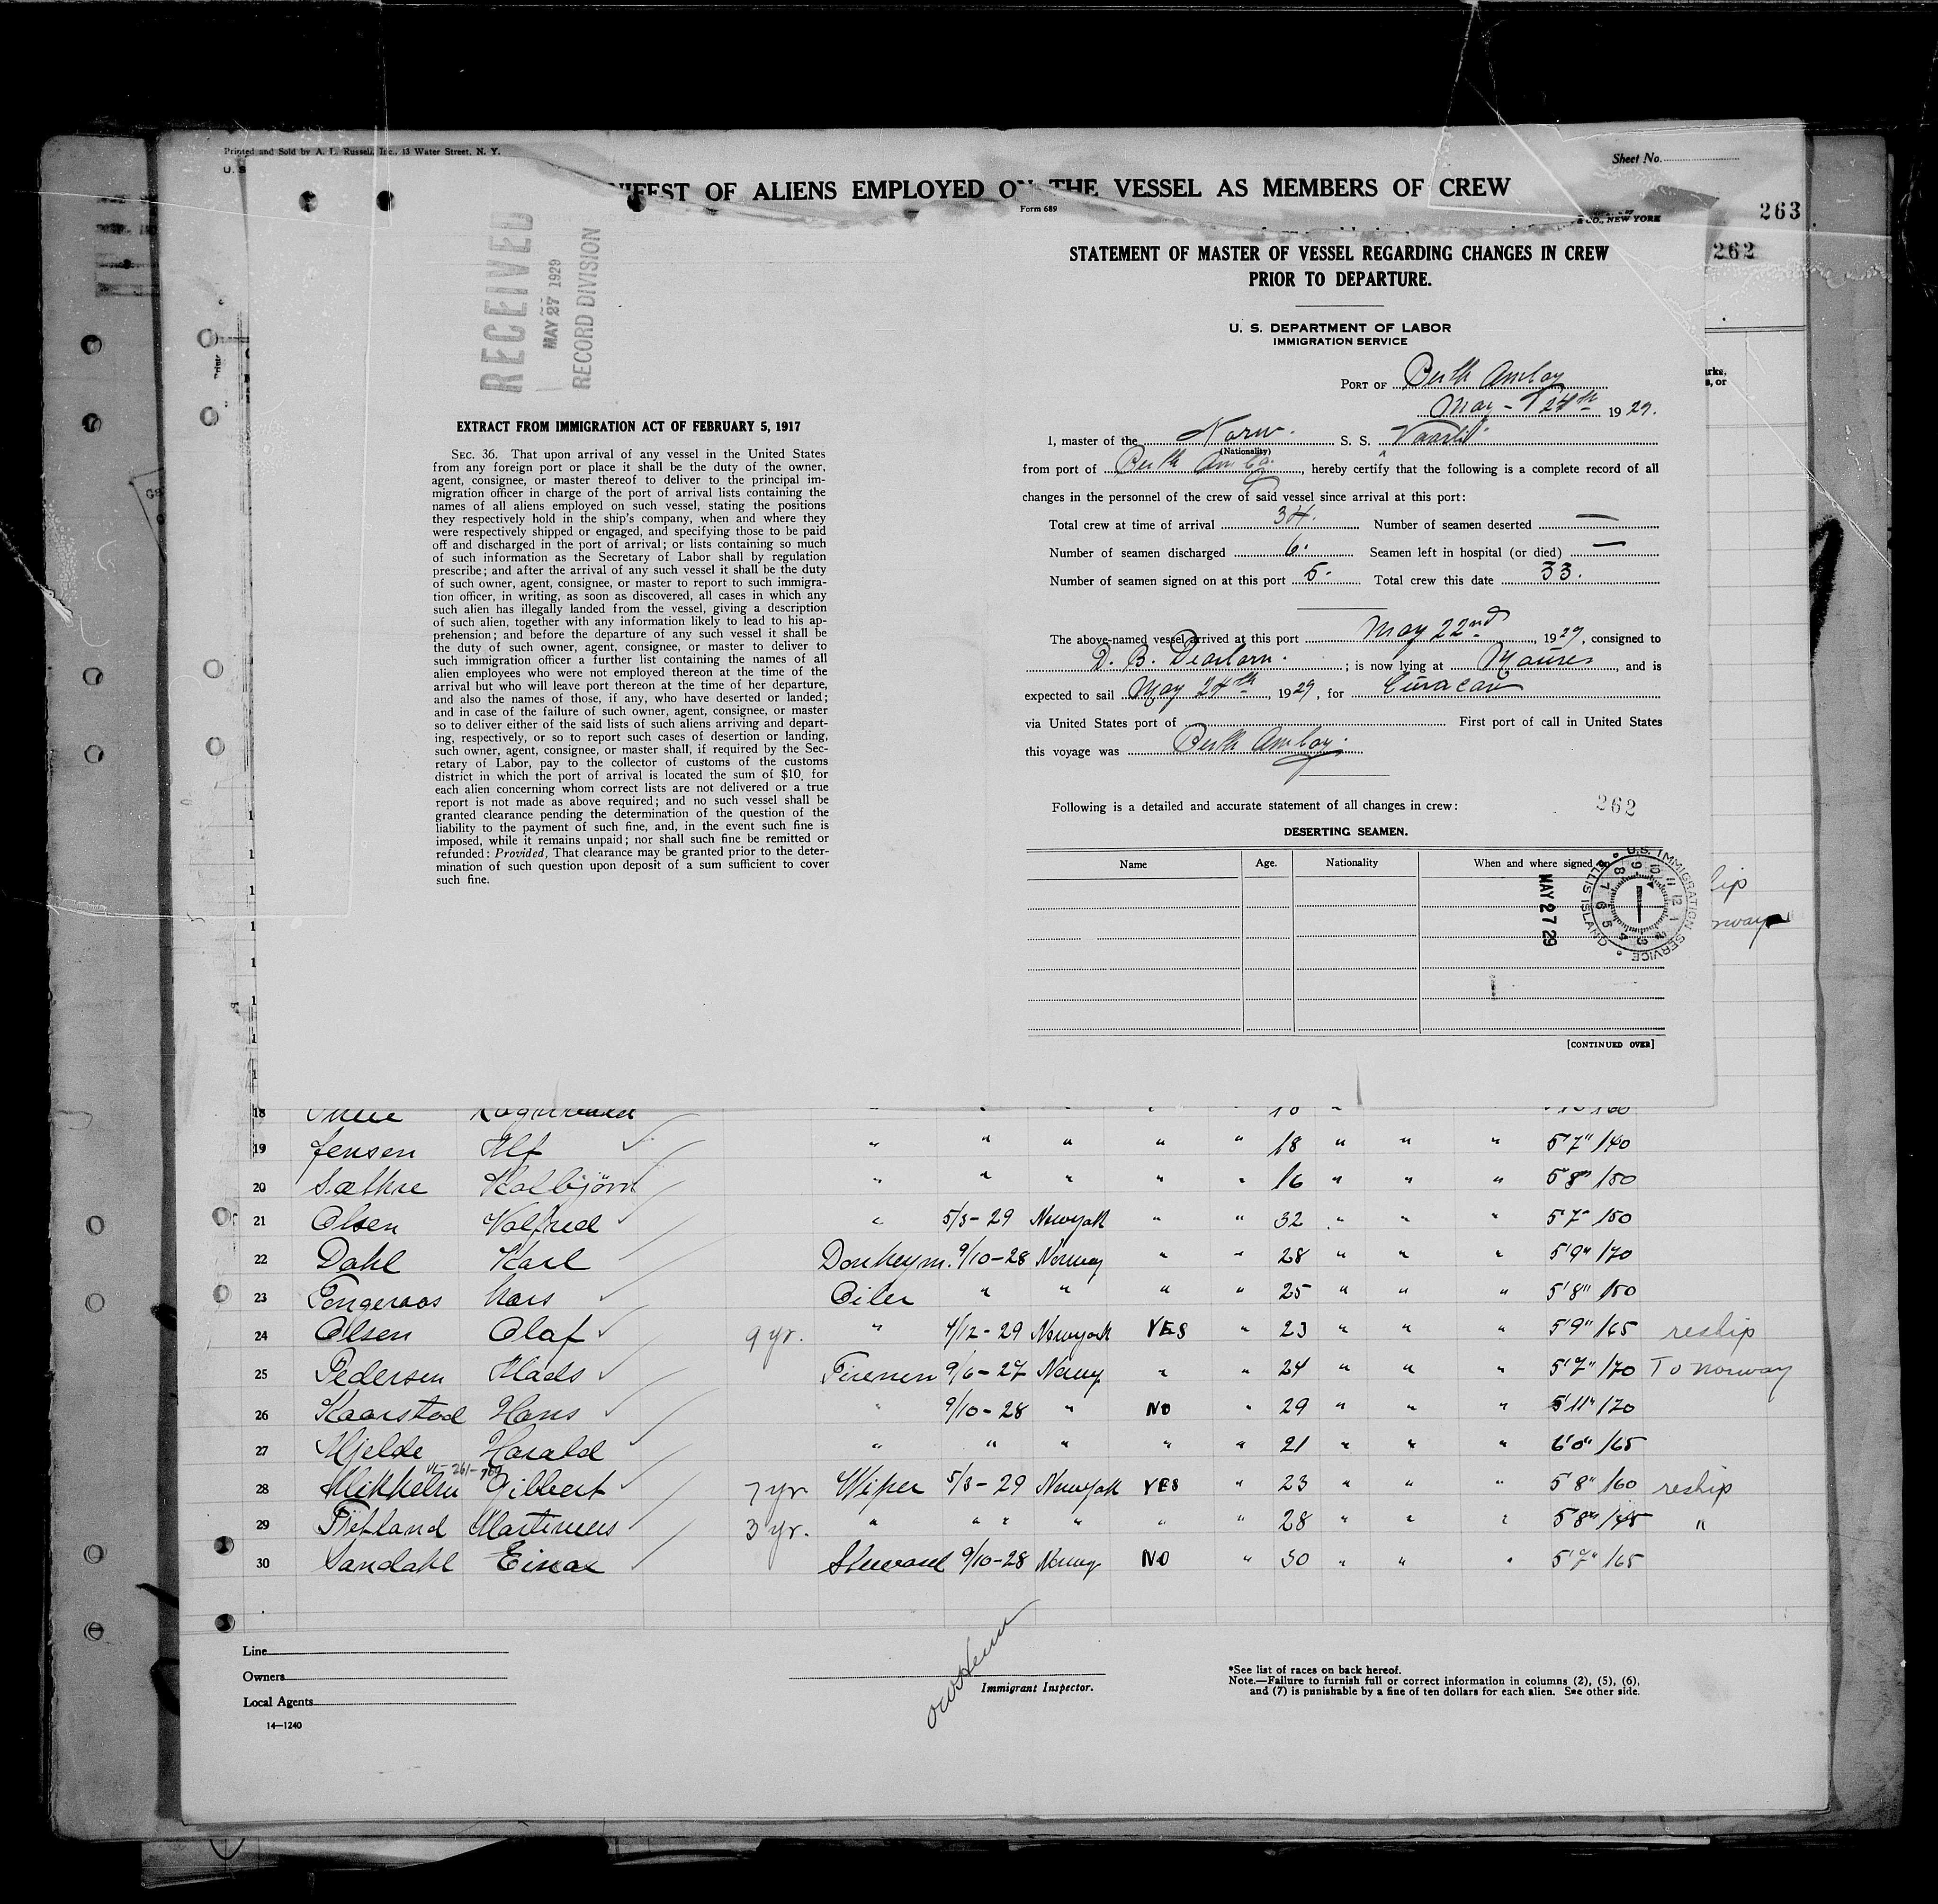 Printed and Sold by A. L. Russell, Inc., 13 Water Street, N. Y.
Sheet No.
U. S
NIFEST OF ALIENS EMPLOYED ON THE VESSEL AS MEMBERS OF CREW
Form 689
& CO., NEW YORK
263
262
RECEIVED
MAY 27 1929
RECORD DIVISION
EXTRACT FROM IMMIGRATION ACT OF FEBRUARY 5, 1917
SEC. 36. That upon arrival of any vessel in the United States
from any foreign port or place it shall be the duty of the owner,
agent, consignee, or master thereof to deliver to the principal im-
migration officer in charge of the port of arrival lists containing the
names of all aliens employed on such vessel, stating the positions
they respectively hold in the ship's company, when and where they
were respectively shipped or engaged, and specifying those to be paid
off and discharged in the port of arrival; or lists containing so much
of such information as the Secretary of Labor shall by regulation
prescribe; and after the arrival of any such vessel it shall be the duty
of such owner, agent, consignee, or master to report to such immigra-
tion officer, in writing, as soon as discovered, all cases in which any
such alien has illegally landed from the vessel, giving a description
of such alien, together with any information likely to lead to his ap-
prehension; and before the departure of any such vessel it shall be
the duty of such owner, agent, consignee, or master to deliver to
such immigration officer a further list containing the names of all
alien employees who were not employed thereon at the time of the
arrival but who will leave port thereon at the time of her departure,
and also the names of those, if any, who have deserted or landed;
and in case of the failure of such owner, agent, consignee, or master
so to deliver either of the said lists of such aliens arriving and depart-
ing, respectively, or so to report such cases of desertion or landing,
such owner, agent, consignee, or master shall, if required by the Sec-
retary of Labor, pay to the collector of customs of the customs
district in which the port of arrival is located the sum of $10 for
each alien concerning whom correct lists are not delivered or a true
report is not made as above required; and no such vessel shall be
granted clearance pending the determination of the question of the
liability to the payment of such fine, and, in the event such fine is
imposed, while it remains unpaid; nor shall such fine be remitted or
refunded: Provided, That clearance may be granted prior to the deter-
mination of such question upon deposit of a sum sufficient to cover
such fine.
STATEMENT OF MASTER OF VESSEL REGARDING CHANGES IN CREW
PRIOR TO DEPARTURE.
U. S. DEPARTMENT OF LABOR
IMMIGRATION SERVICE
PORT OF Perth Amboy
May - 24th 1929.
I, master of the Norw. S. S.
(Nationality)
from port of Perth Amboy, hereby certify that the following is a complete record of all
changes in the personnel of the crew of said vessel since arrival at this port:
Total crew at time of arrival 34. Number of seamen deserted —
Number of seamen discharged 6. Seamen left in hospital (or died) —
Number of seamen signed on at this port 5- Total crew this date 33.
The above-named vessel arrived at this port May 22nd, 1929, consigned to
D. B. Dearborn. ; is now lying at , and is
expected to sail May 24th, 1929, for Curacao
via United States port of First port of call in United States
this voyage was Perth Amboy.
Following is a detailed and accurate statement of all changes in crew:
262
DESERTING SEAMEN.
Name Age. Nationality When and where signed
MAY 27 29
U.S. IMMIGRATION SERVICE ELLIS ISLAND
[CONTINUED OVER]
18
19 Jensen Alf " " " " " 18 " " " 5'7" 140
20 Sæthre Kolbjörn " " " " " 16 " " " 5'8" 150
21 Olsen Valfred " 5/3-29 Newyork " " 32 " " " 5'7" 150
22 Dahl Karl Donkeym. 9/10-28 Norway " " 28 " " " 5'9" 170
23 Tengeraas Lars Oiler " " " " 25 " " " 5'8" 150
24 Olsen Olaf 9 yr. " 4/12-29 Newyork YES " 23 " " " 5'9" 165 reship
25 Pedersen Mads Firemen 9/6-27 Norway " " 24 " " " 5'7" 170 To Norway
26 Kaarstad Hans " 9/10-28 " NO " 29 " " " 5'11" 170
27 Hjelde Harald " " " " " 21 " " " 6'0" 165
28 Mikkelsn Gilbert 7 yr Wiper 5/3-29 Newyork YES " 23 " " " 5'8" 160 reship
29 Martinius 3 yr. " " " " " " 28 " " " 5'8" 145 "
30 Sandahl Einar Steward 9/10-28 Norway NO " 30 " " " 5'7" 165
Line
Owners
Local Agents
14—1240
Immigrant Inspector.
*See list of races on back hereof.
Note.—Failure to furnish full or correct information in columns (2), (5), (6),
and (7) is punishable by a fine of ten dollars for each alien. See other side.